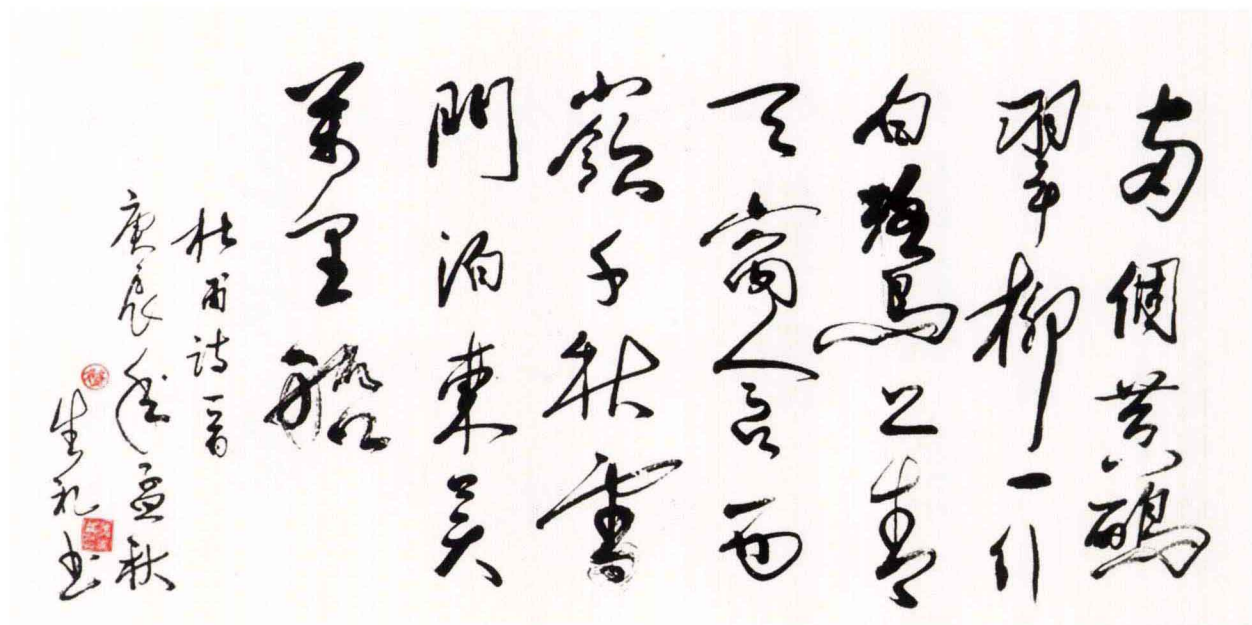 两個黄鸝
翠柳一行
白鷺上青
天窗含西
嶺千秋雪
門泊東吴
萬里船
杜甫詩一首
庚辰年孟秋
生礼书